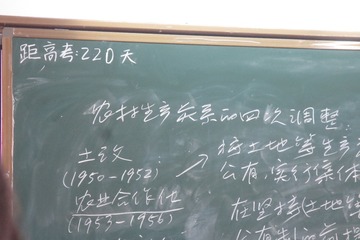 距高考:220天
农村生产关系的四次调整:
土改
(1950-1952)
将土地等生产
公有,实行集体
农业合作化
(1953-1956)
在坚持土地
公有制的前提